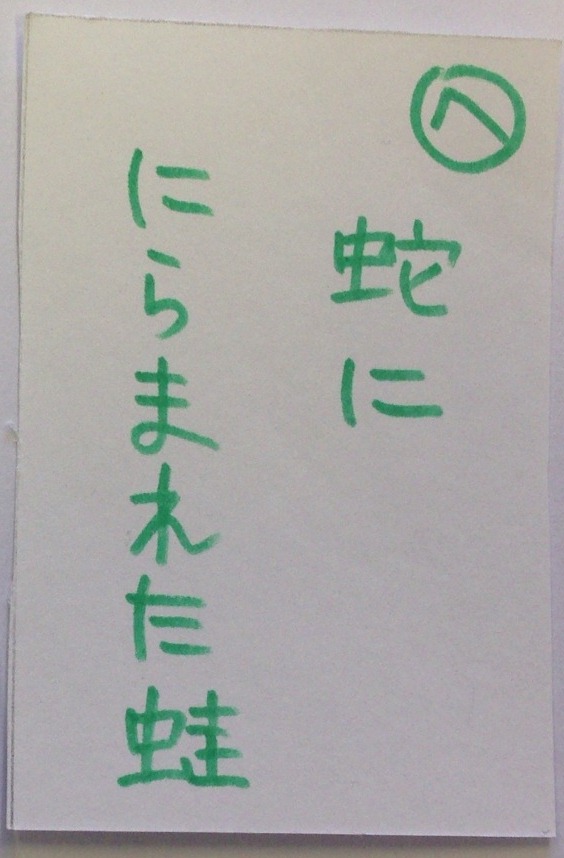 へ
蛇に
にらまれた蛙